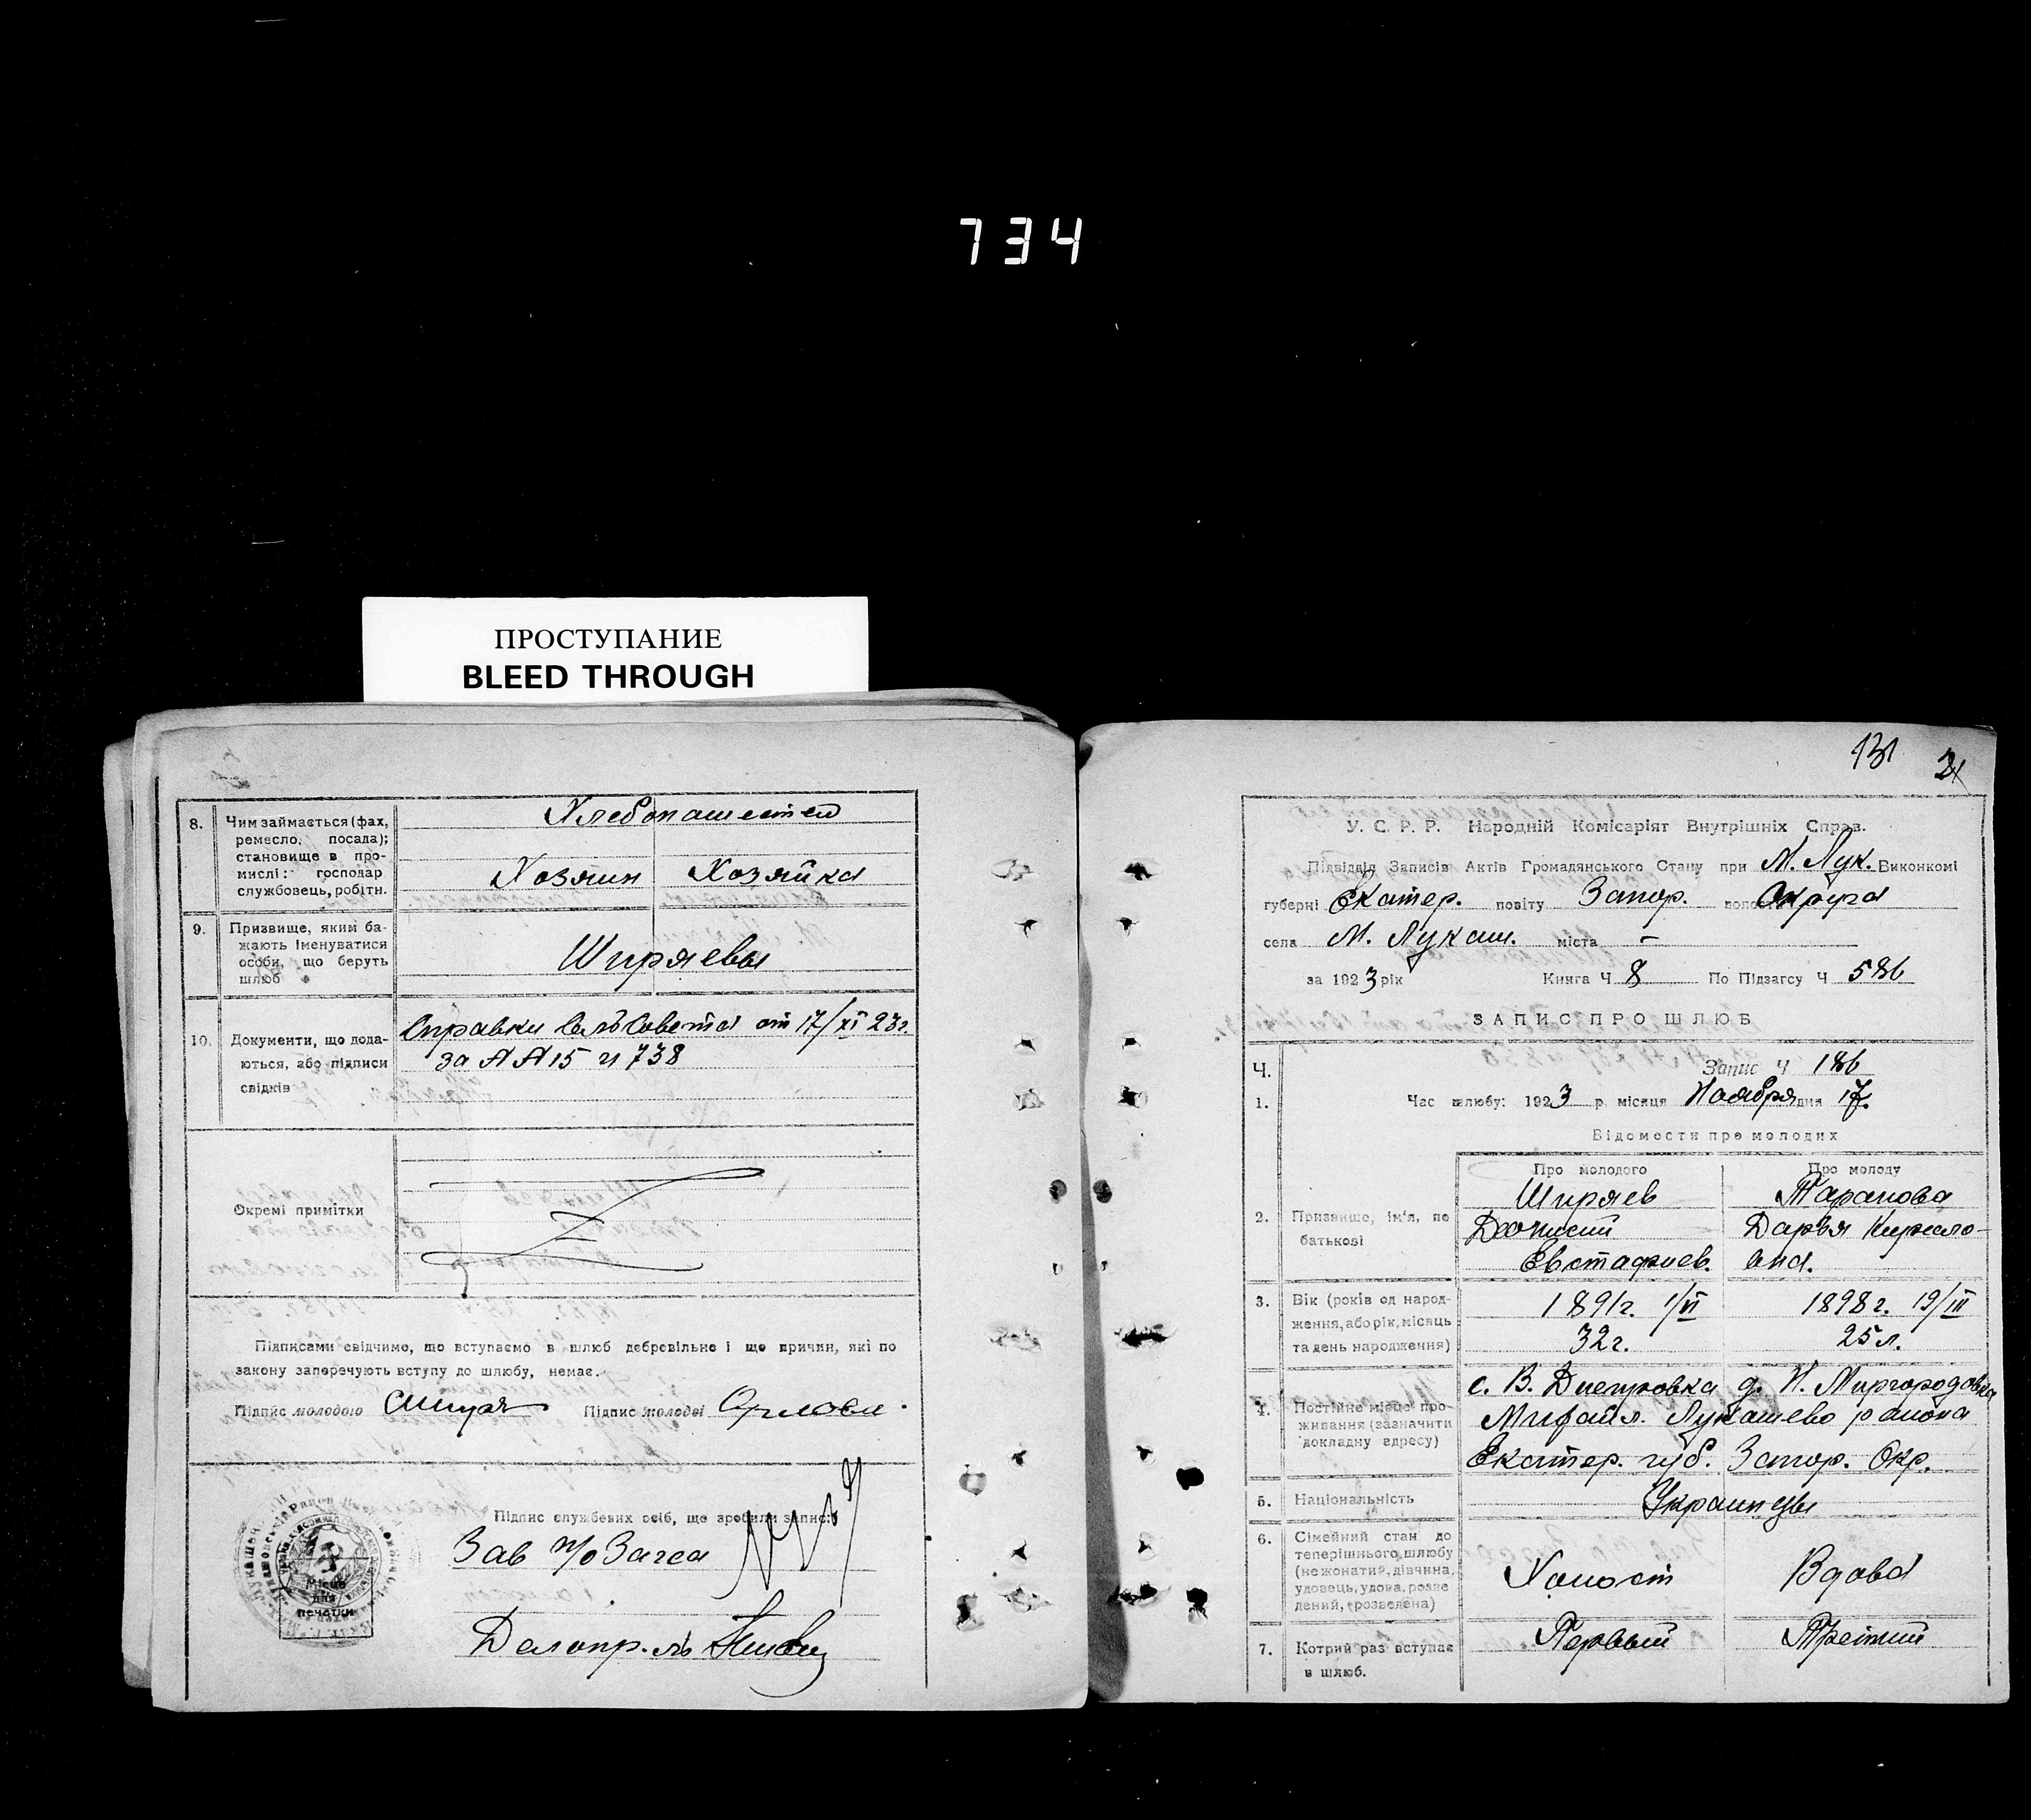 734
ПРОСТУПАНИЕ
BLEED THROUGH
8. Чим займається (фах, ремесло, посада); становище в промислі: господар службовець, робітн.
Хлебопашество
Хозяин Хозяйка
9. Призвище, яким бажають іменуватися особи, що беруть шлюб
Ширяевы
10. Документи, що додаються, або підписи свідків
Справки сельсовета от 17/XI 23г.
за № № 15 и 738
Окремі примітки
Підписами свідчимо, що вступаємо в шлюб добровільно і що причин, які по
закону заперечують вступу до шлюбу, немає.
Підпис молодого Підпис молодої Орлова.
Підпис службових осіб, що зробили запис:
Зав п/о Загса
Делопр.ль
Місце
для
печатки
131
21
У. С. Р. Р. Народній Комісаріят Внутрішніх Справ.
Підвідділ Записів Актів Громадянського Стану при М. Лук. Виконкомі
губерні Екатер. повіту Запор. волости Округа
села М. Лукаш. міста –
за 1923 рік Книга Ч 8 По Підзагсу Ч 586
ЗАПИС ПРО ШЛЮБ
Ч. Запис Ч 186
1. Час шлюбу: 1923 р. місяця Ноября дня 17.
Відомости про молодих
Про молодого Про молоду
2. Призвище, ім'я, по батькові
Ширяев Таранова
Дионисий Дарья Кирило-
Евстафиев. вна.
3. Вік (років од народження, або рік, місяць та день народження)
1891г. 1/VI 1898г. 19/III
32г. 25л.
4. Постійне місце проживання (зазначити докладну адресу)
с. В. Днепровка д. Н. Миргородовка
Михайл. Лукашево района
Екатер. губ. Запор. Окр.
5. Національність Украинцы
6. Сімейний стан до теперішнього шлюбу (не жонатий, дівчина, удовець, удова, розведений, розведена)
Холост Вдова
7. Котрий раз вступає в шлюб.
Первый Третий